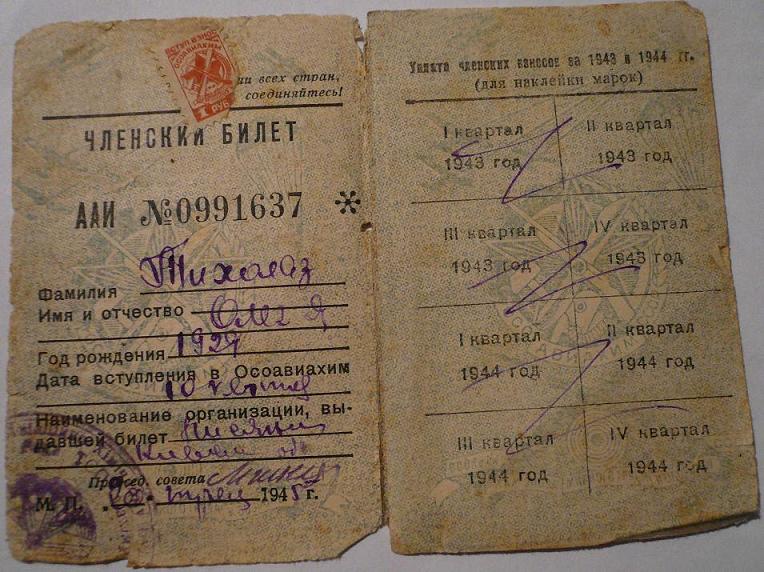 ВСТУП. ВЗНОС
ОСОАВИАХИМ
1 РУБ
ии всех стран,
соединяйтесь!
ЧЛЕНСКИЙ БИЛЕТ
ААИ №0991637 *
Фамилия
Имя и отчество Олег Я
Год рождения 1929
Дата вступления в Осоавиахим
10
Наименование организации, вы-
давшей билет
Председ. совета
М. П. 1945 г.
Уплата членских взносов за 1943 и 1944 гг.
(для наклейки марок)
I квартал
1943 год
II квартал
1943 год
III квартал
1943 год
IV квартал
1943 год
I квартал
1944 год
II квартал
1944 год
III квартал
1944 год
IV квартал
1944 год